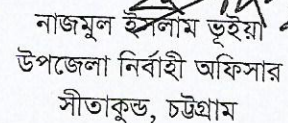 নাজমুল ইসলাম ভূইয়া
উপজেলা নির্বাহী অফিসার
সীতাকুন্ড, চট্টগ্রাম